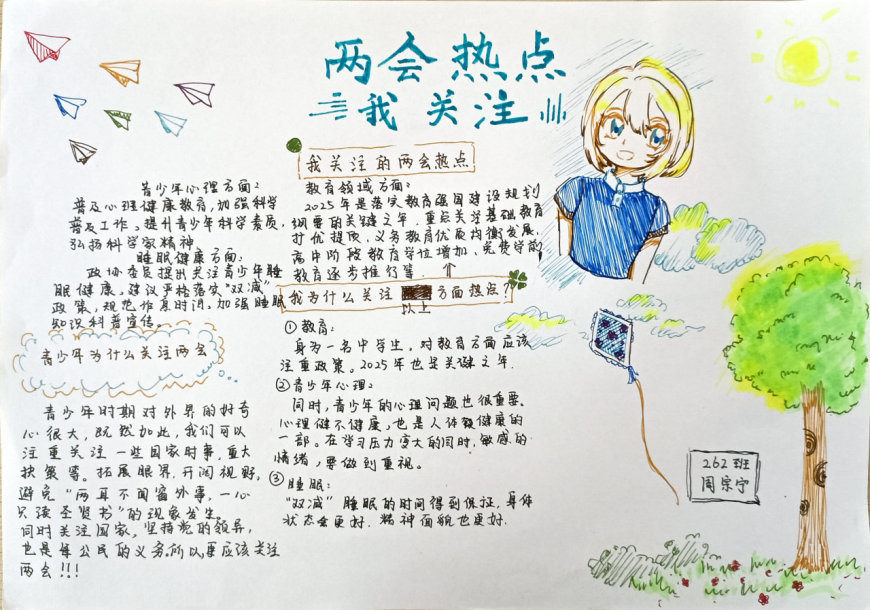 两会热点
我关注
我关注的两会热点
教育领域方面:
2025年是落实教育强国建设规划
纲要的关键之年,重点关注基础教育
扩优提质,义务教育优质均衡发展,
高中阶段教育学位增加,免费学前
教育逐步推行等.
青少年心理方面:
普及心理健康教育,加强科学
普及工作。提升青少年科学素质,
弘扬科学家精神
睡眠健康方面:
政协委员提出关注青少年睡
眠健康,建议严格落实“双减”
政策,规范作息时间,加强睡眠
知识科普宣传。
青少年为什么关注两会
青少年时期对外界的好奇
心很大,既然如此,我们可以
注重关注一些国家时事,重大
决策等。拓展眼界,开阔视野,
避免“两耳不闻窗外事,一心
只读圣贤书”的现象发生。
同时关注国家,坚持党的领导,
也是每公民的义务.所以更应该关注
两会!!!
我为什么关注 方面热点?
以上
①教育:
身为一名中学生,对教育方面应该
注重政策。2025年也是关键之年.
②青少年心理:
同时,青少年的心理问题也很重要。
心理健不健康,也是人体健康的
一部。在学习压力变大的同时,敏感的
情绪,要做到重视。
③睡眠:
“双减”睡眠的时间得到保证,身体
状态会更好.精神面貌也更好.
262班
周宗宁